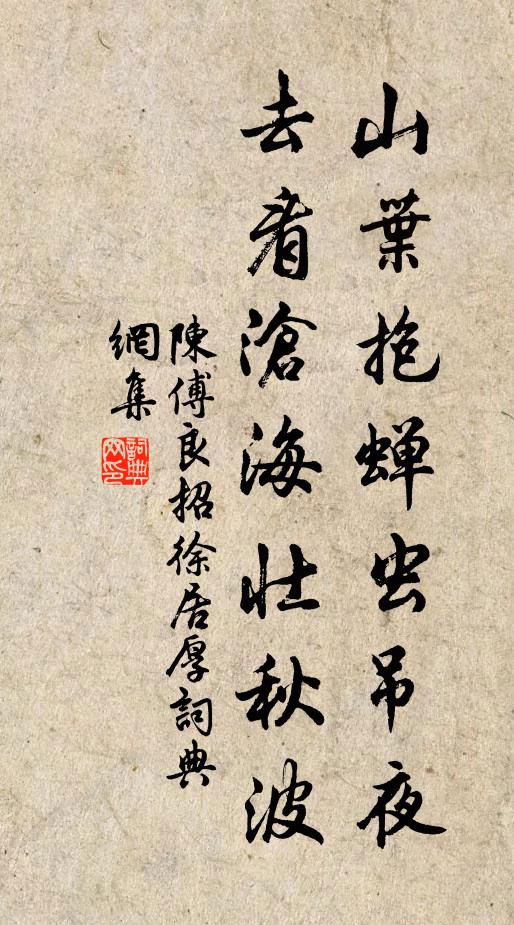 山葉抱蝉虫吊夜
去看滄海壮秋波
陳傅良招徐居厚詞典
網集
詞典
网印